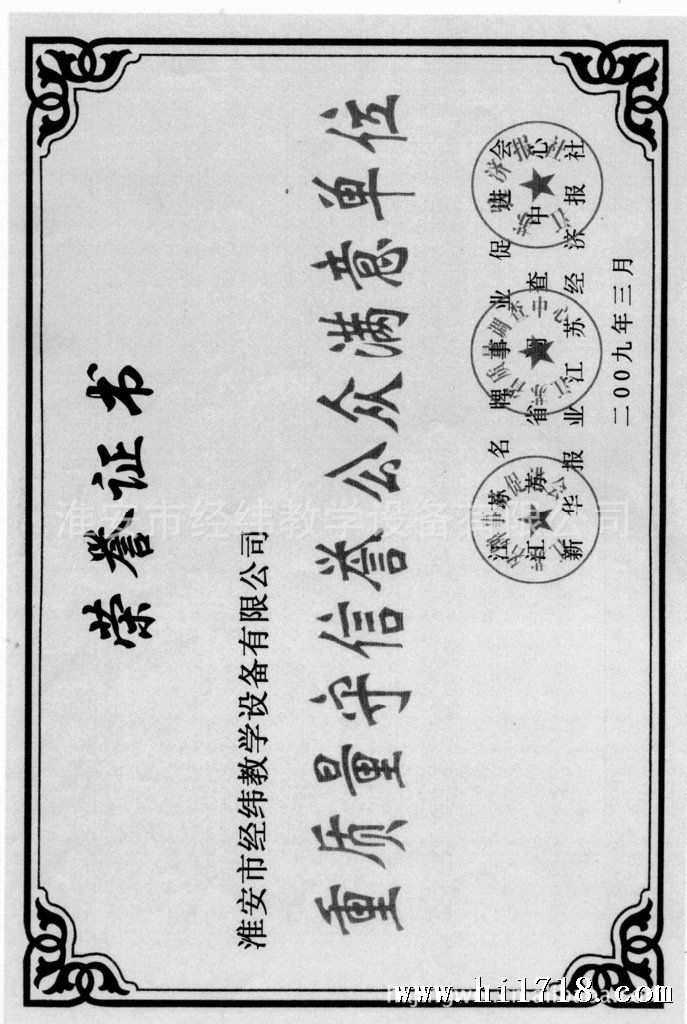 荣誉证书
淮安市经纬教学设备有限公司
重质量守信誉公众满意单位
江苏名牌事业促进会
江苏省调查中心
新华报业江苏经济报社
二00九年三月
淮安市经纬教学设备有限公司
www.hi1718.com